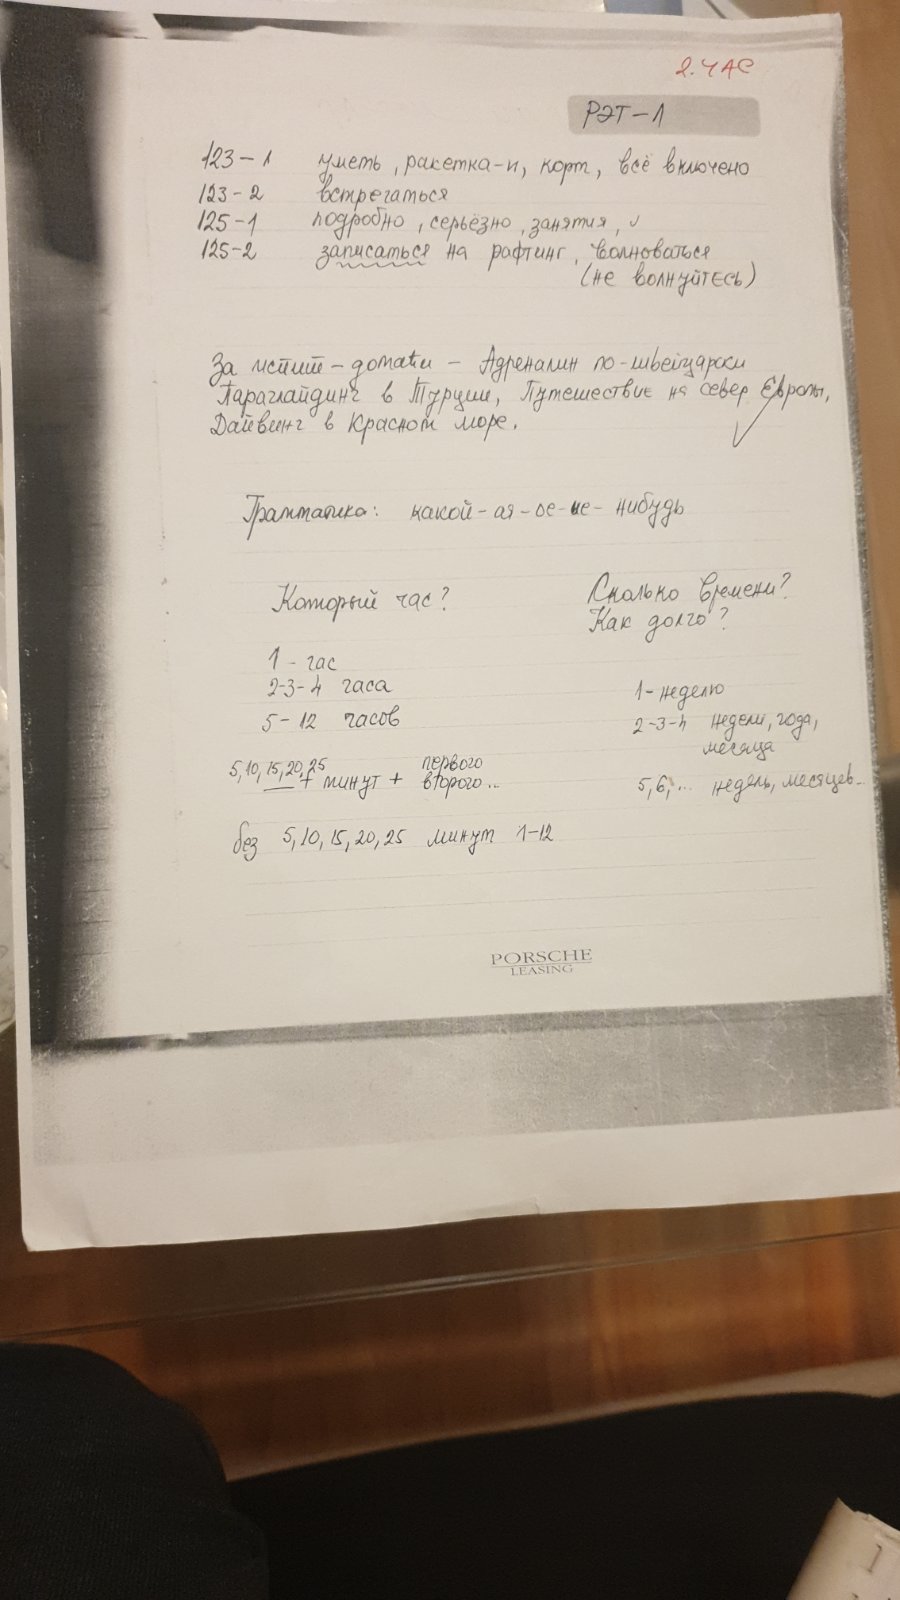 2. ЧАС
РЭТ-1
123-1 уметь, ракетка-и, корт, всё включено
123-2 встречаться
125-1 подробно, серьёзно, занятия,
125-2 записаться на рафтинг, волноваться
(не волнуйтесь)
За испит - домаћи - Адреналин по-швейцарски
Параглайдинг в Турции, Путешествие на север Европы,
Дайвинг в Красном море.
Грамматика: какой-ая-ое-ие- нибудь
Который час?
1 - час
2-3-4 часа
5-12 часов
5,10,15,20,25 + минут + первого
второго...
без 5,10,15,20,25 минут 1-12
Сколько времени?
Как долго?
1-неделю
2-3-4 недели, года,
месяца
5,6,... недель, месяцев...
PORSCHE
LEASING